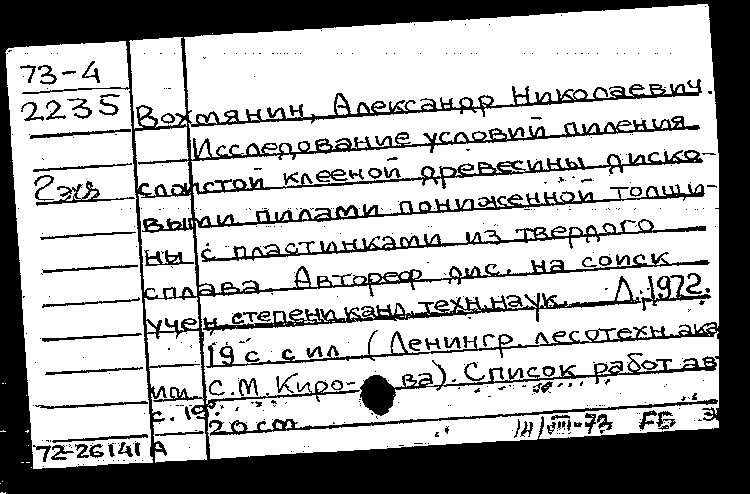 73-4
2235 Вохмянин, Александр Николаевич.
Исследование условий пиления
2 экз слоистой клееной древесины диско-
выми пилами пониженной толщи-
ны с пластинками из твердого
сплава. Автореф дис. на соиск
учен. степени канд. техн. наук. Л., 1972.
19 с. с ил. (Ленингр. лесотехн. ака
им. С.М. Киро- ва). Список работ ав
с. 19.
20 см
72-26141 А VIII-73 ГБ